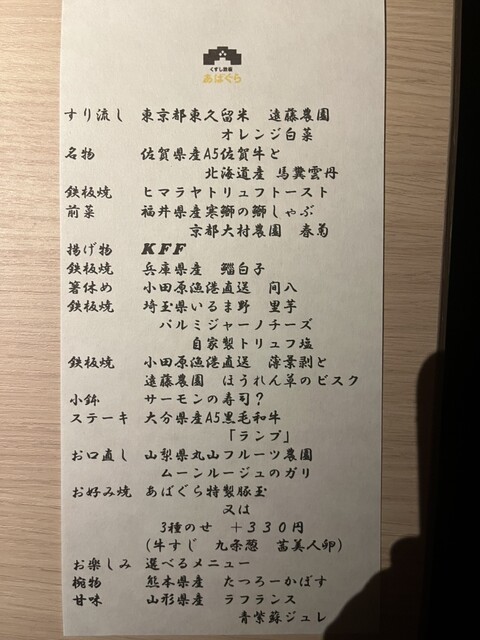 くずし鉄板
あばぐら
すり流し 東京都東久留米 遠藤農園
オレンジ白菜
名物 佐賀県産A5佐賀牛と
北海道産 馬糞雲丹
鉄板焼 ヒマラヤトリュフトースト
前菜 福井県産寒鰤の鰤しゃぶ
京都大村農園 春菊
揚げ物 KFF
鉄板焼 兵庫県産 鯔白子
箸休め 小田原漁港直送 間八
鉄板焼 埼玉県いるま野 里芋
パルミジャーノチーズ
自家製トリュフ塩
鉄板焼 小田原漁港直送 薄葉剥と
遠藤農園 ほうれん草のビスク
小鉢 サーモンの寿司?
ステーキ 大分県産A5黒毛和牛
「ランプ」
お口直し 山梨県丸山フルーツ農園
ムーンルージュのガリ
お好み焼 あばぐら特製豚玉
又は
3種のせ +330円
(牛すじ 九条葱 茜美人卵)
お楽しみ 選べるメニュー
椀物 熊本県産 たつろーかばす
甘味 山形県産 ラフランス
青紫蘇ジュレ